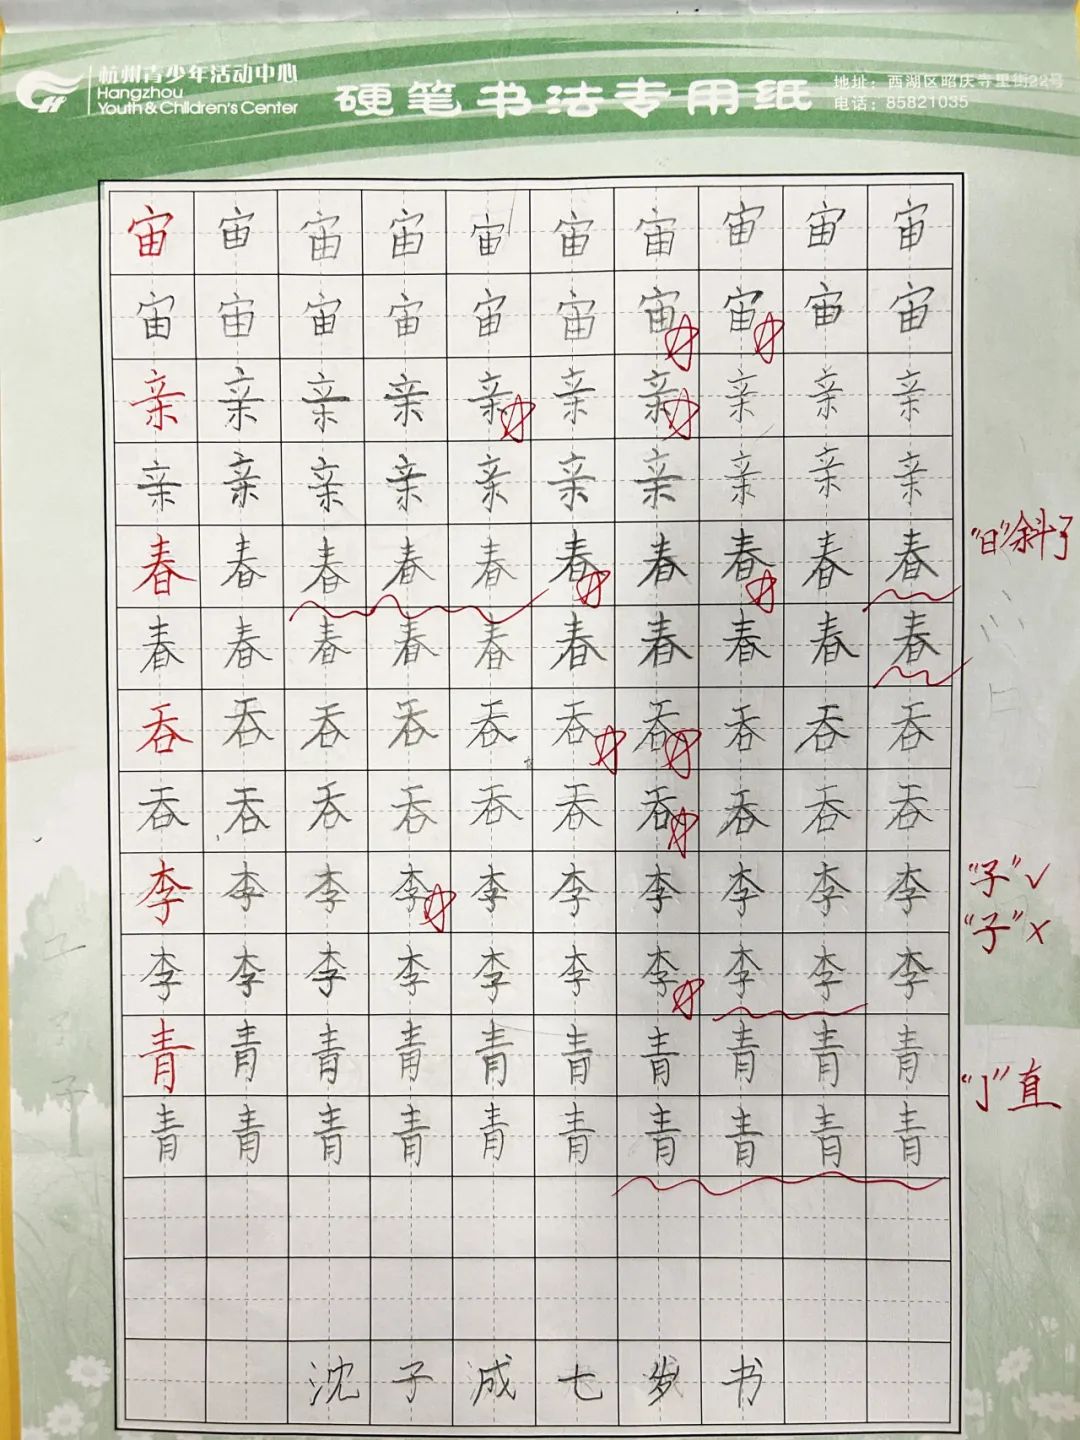 杭州青少年活动中心
Hangzhou
Youth & Children's Center
硬笔书法专用纸
地址：西湖区昭庆寺里街22号
电话：85821035
宙宙宙宙宙宙宙宙宙宙
宙宙宙宙宙宙宙宙宙宙
亲亲亲亲亲亲亲亲亲亲
亲亲亲亲亲亲亲亲亲亲
春春春春春春春春春春
"日"斜了
春春春春春春春春春春
吞吞吞吞吞吞吞吞吞吞
吞吞吞吞吞吞吞吞吞吞
李李李李李李李李李李
"子"√
"子"×
李李李李李李李李李李
青青青青青青青青青青
"亅"直
青青青青青青青青青青
沈子 七岁书